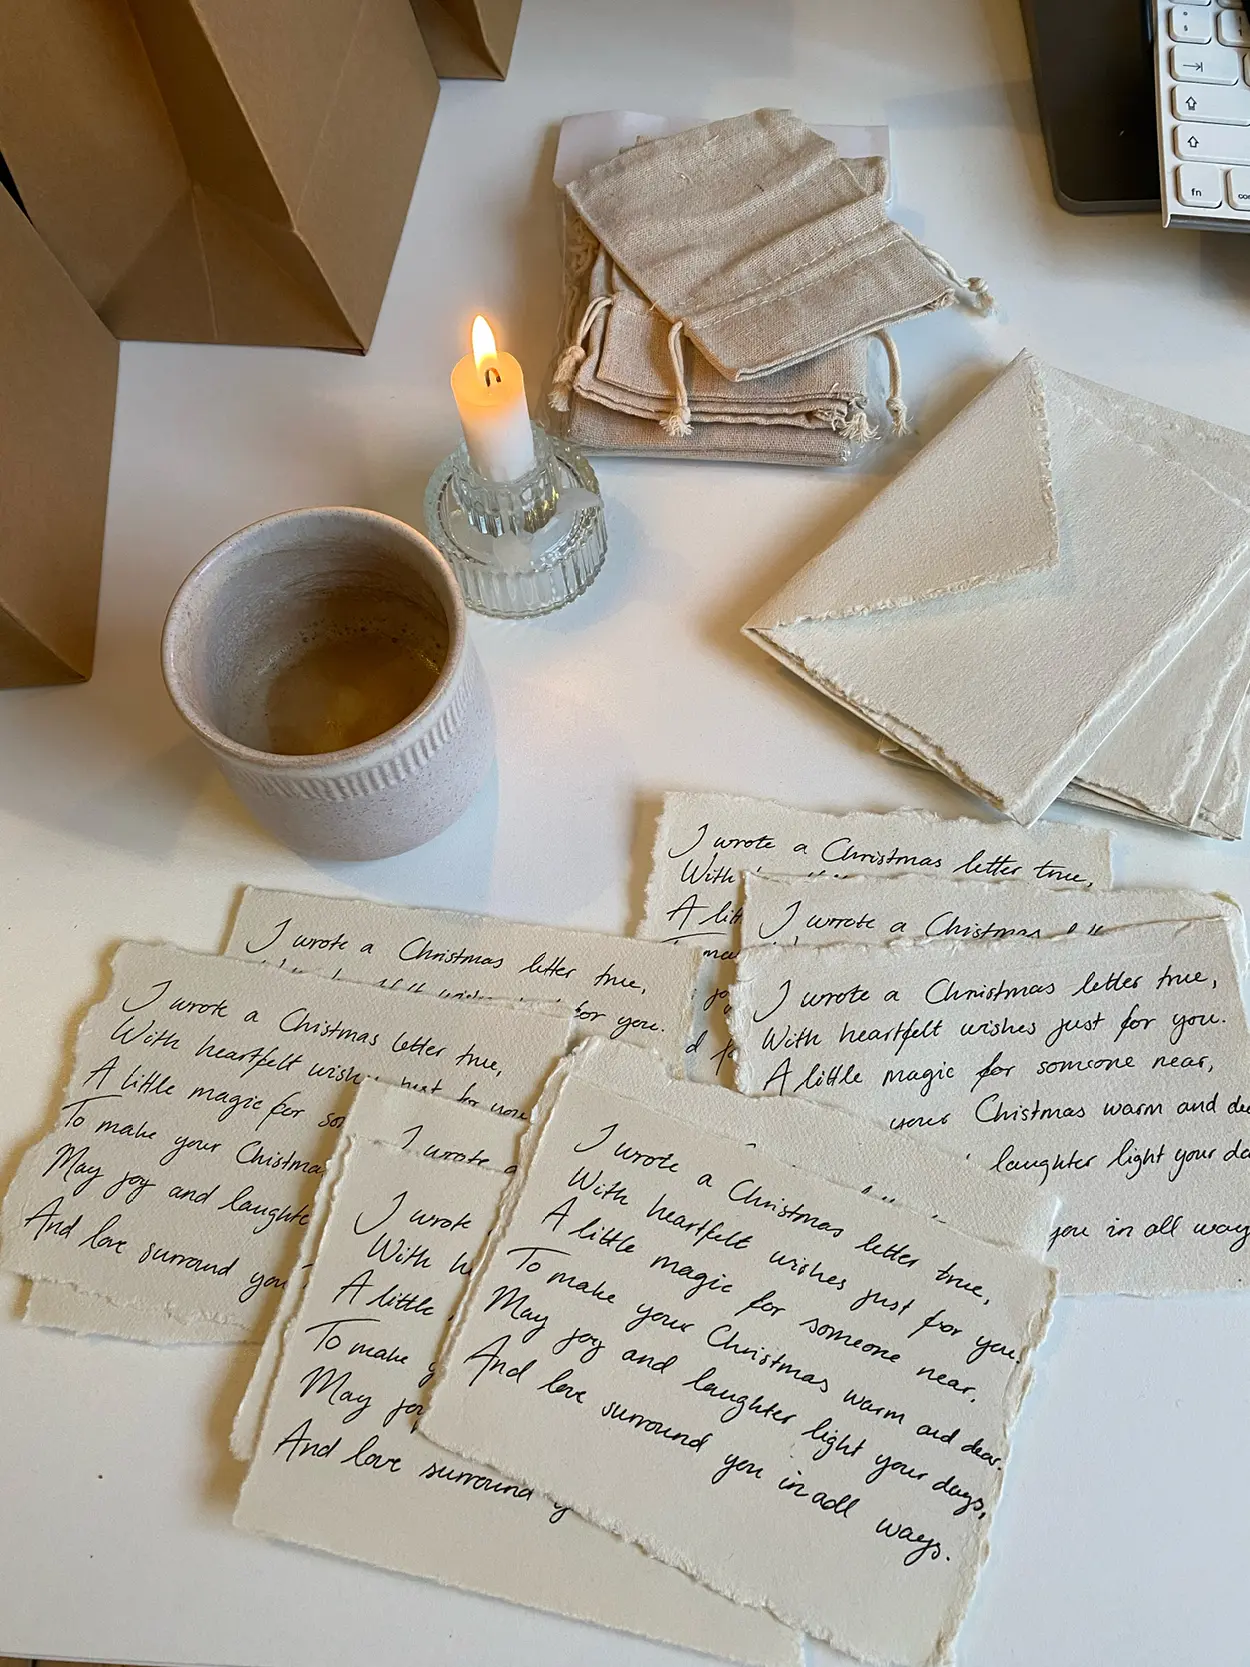 fn
I wrote a Christmas letter true,
With
A
I wrote a
I wrote a Christmas letter true,
With heartfelt wishes just for you.
A little magic for someone near,
your Christmas warm and
laughter light your
you in all
I wrote a Christmas letter true,
for you.
I wrote a Chistmas letter true,
With heartfelt
A little magic for
To make your
May joy and
And love surround
I wrote
I wrote
With
A little
To make
May
And love surround
I wrote a Christmas letter true,
With heartfelt wishes just for you.
A little magic for someone near.
To make your Christmas warm and dear.
May joy and laughter light your days,
And love surround you in all ways.